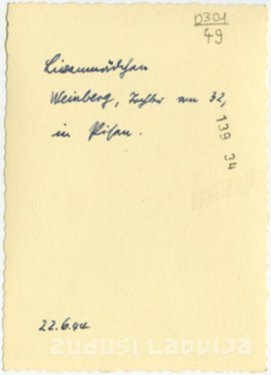 D301
49
Livenmädchen
Weinberg, Tochter von 32,
in Pisan.
139 34
22.6.44
ZUDUSI LATVIJA